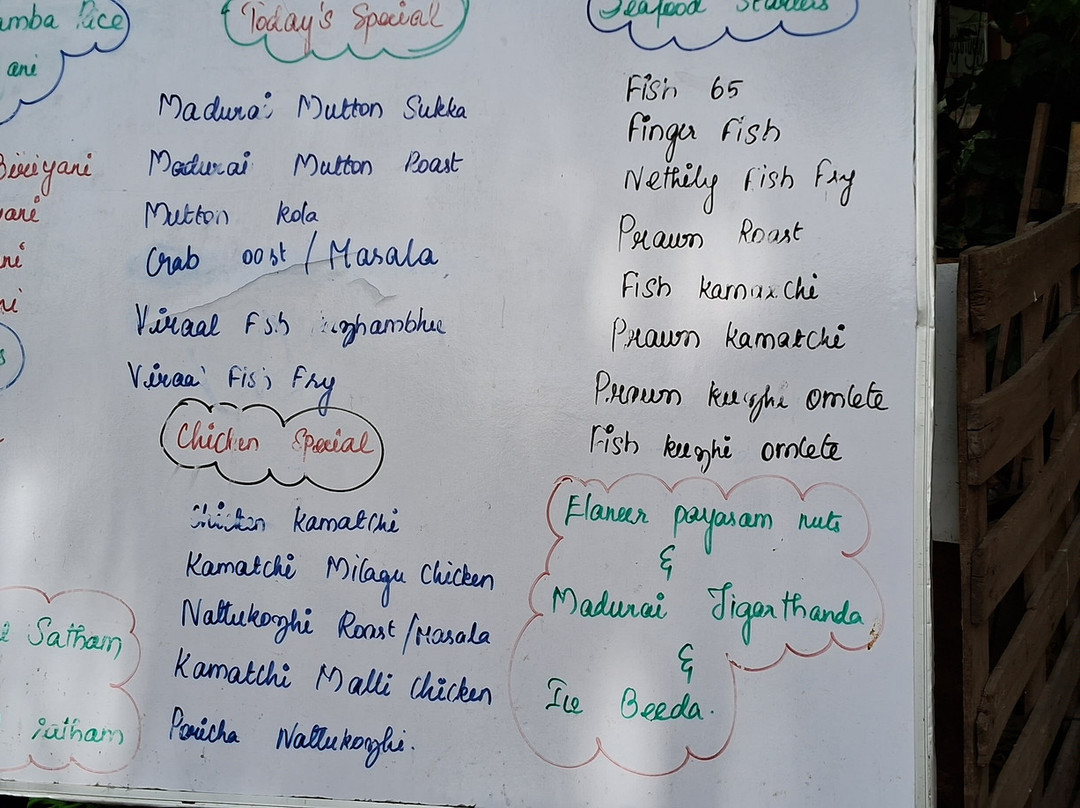 amba Rice
ani
Biriyani
ani
ni
ni
s
Satham
Today's Special
Madurai Mutton Sukka
Madurai Mutton Roast
Mutton kola
Crab oost / Masala
Viraal Fsh
Viraal Fish Fry
Chicken Special
Chicken Kamatchi
Kamatchi Milagu Chicken
Nattukozhi Roast / Masala
Kamatchi Malli Chicken
Poricha Nattukozhi.
Seafood Starters
Fish 65
Finger Fish
Nethily Fish Fry
Prawn Roast
Fish kamatchi
Prawn kamatchi
Prawn kuzhi omlete
Fish kuzhi omlete
Elaneer payasam nuts
&
Madurai Jigarthanda
&
Ice Beeda.